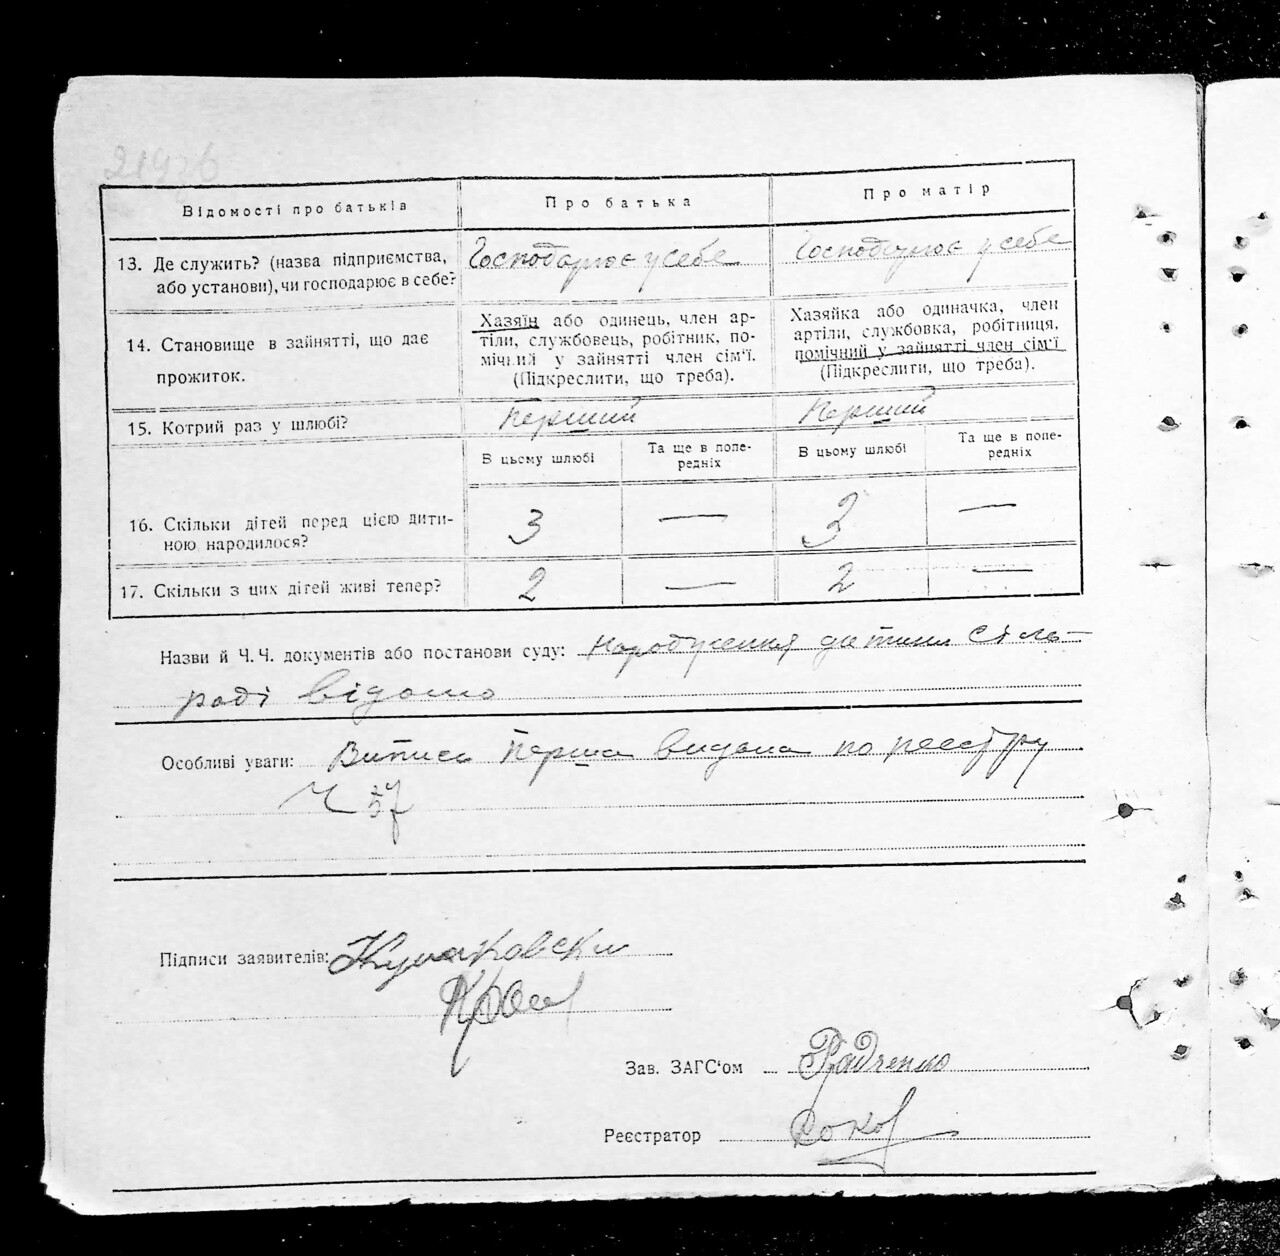 21926
Відомості про батьків
Про батька
Про матір
13. Де служить? (назва підприємства,
або установи), чи господарює в себе?
Господарює у себе
Господарює у себе
14. Становище в зайнятті, що дає
прожиток.
Хазяїн або одинець, член ар-
тіли, службовець, робітник, по-
мічний у зайнятті член сім'ї.
(Підкреслити, що треба).
Хазяйка або одиначка, член
артіли, службовка, робітниця,
помічний у зайнятті член сім'ї
(Підкреслити, що треба).
15. Котрий раз у шлюбі?
Перший
Перший
В цьому шлюбі
Та ще в попе-
редніх
В цьому шлюбі
Та ще в попе-
редніх
16. Скільки дітей перед цією дити-
ною народилося?
3
—
3
—
17. Скільки з цих дітей живі тепер?
2
—
2
—
Назви й Ч.Ч. документів або постанови суду: Народження дитини сіль-
раді відомо
Особливі уваги: Випись перша видана по реєстру
Ч 57
Підписи заявителів:
Зав. ЗАГС'ом Радченко
Реєстратор